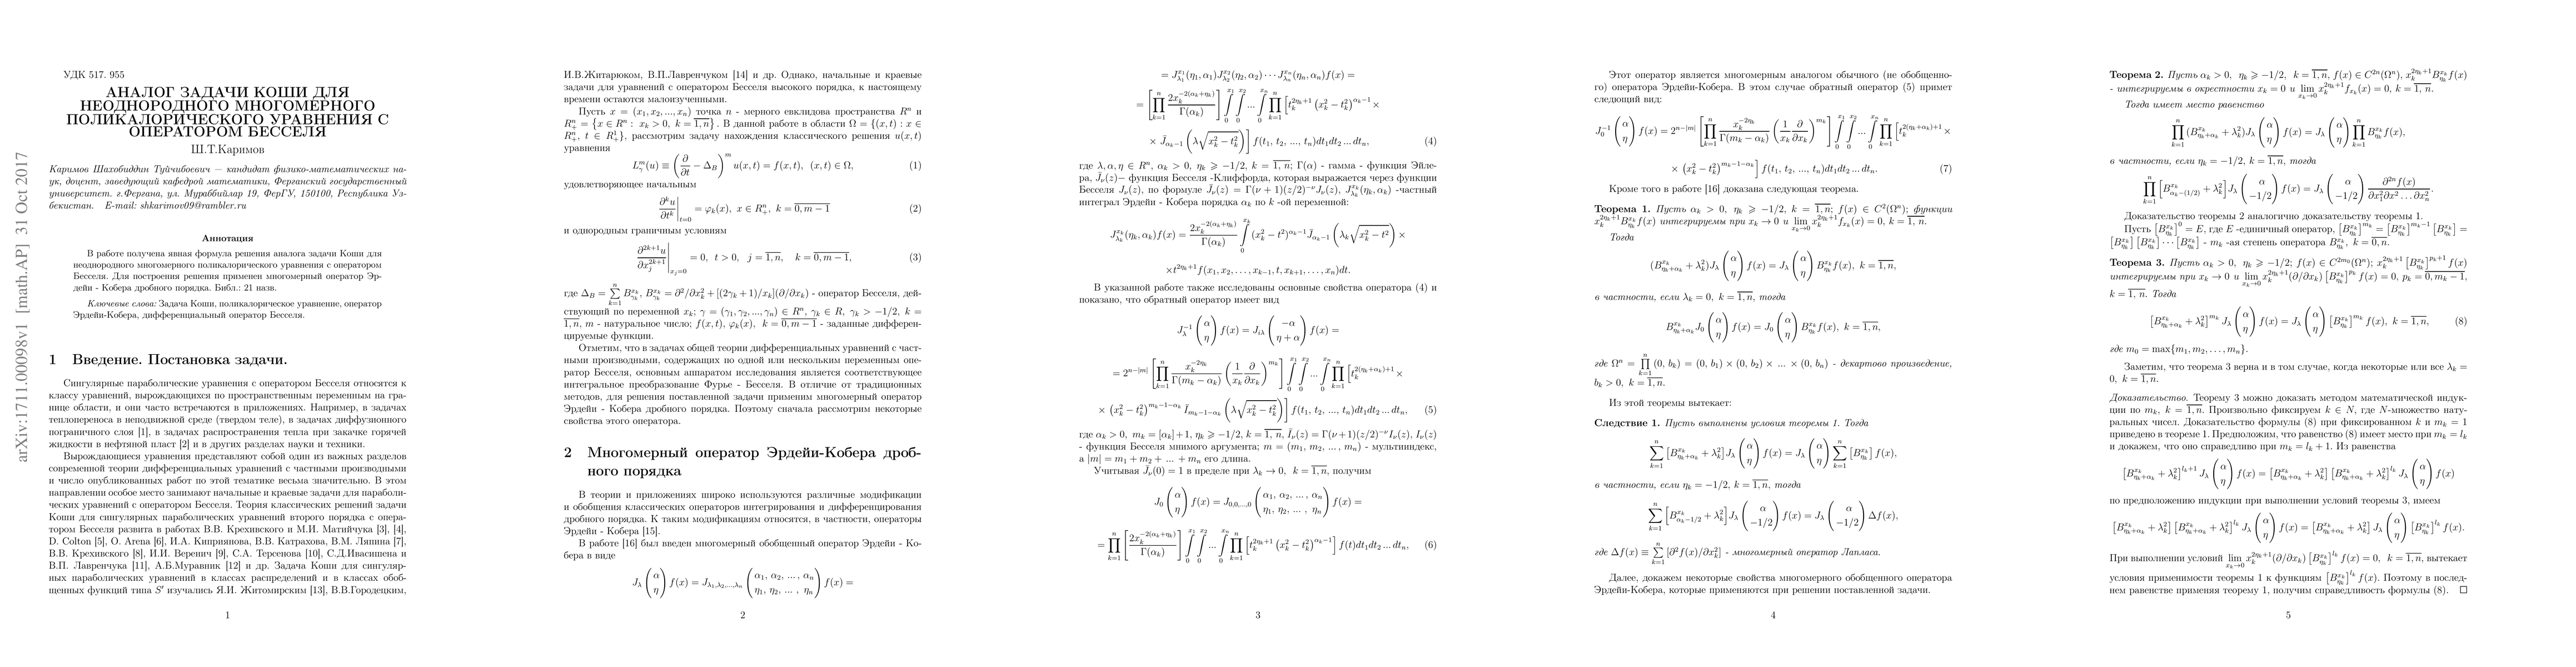 arXiv:1711.00098v1 [math.AP] 31 Oct 2017
УДК 517. 955
АНАЛОГ ЗАДАЧИ КОШИ ДЛЯ
НЕОДНОРОДНОГО МНОГОМЕРНОГО
ПОЛИКАЛОРИЧЕСКОГО УРАВНЕНИЯ С
ОПЕРАТОРОМ БЕССЕЛЯ
Ш.Т.Каримов
Каримов Шахобиддин Туйчибоевич — кандидат физико-математических на-
ук, доцент, заведующий кафедрой математики, Ферганский государственный
университет. г.Фергана, ул. Мураббийлар 19, ФерГУ, 150100, Республика Уз-
бекистан. E-mail: shkarimov09@rambler.ru
Аннотация
В работе получена явная формула решения аналога задачи Коши для
неоднородного многомерного поликалорического уравнения с оператором
Бесселя. Для построения решения применен многомерный оператор Эр-
дейи - Кобера дробного порядка. Библ.: 21 назв.
Ключевые слова: Задача Коши, поликалорическое уравнение, оператор
Эрдейи-Кобера, дифференциальный оператор Бесселя.
1 Введение. Постановка задачи.
Сингулярные параболические уравнения с оператором Бесселя относятся к
классу уравнений, вырождающихся по пространственным переменным на гра-
нице области, и они часто встречаются в приложениях. Например, в задачах
теплопереноса в неподвижной среде (твердом теле), в задачах диффузионного
пограничного слоя [1], в задачах распространения тепла при закачке горячей
жидкости в нефтяной пласт [2] и в других разделах науки и техники.
Вырождающиеся уравнения представляют собой один из важных разделов
современной теории дифференциальных уравнений с частными производными
и число опубликованных работ по этой тематике весьма значительно. В этом
направлении особое место занимают начальные и краевые задачи для параболи-
ческих уравнений с оператором Бесселя. Теория классических решений задачи
Коши для сингулярных параболических уравнений второго порядка с опера-
тором Бесселя развита в работах В.В. Крехивского и М.И. Матийчука [3], [4],
D. Colton [5], O. Arena [6], И.А. Киприянова, В.В. Катрахова, В.М. Ляпина [7],
В.В. Крехивского [8], И.И. Веренич [9], С.А. Терсенова [10], С.Д.Ивасишена и
В.П. Лавренчука [11], А.Б.Муравник [12] и др. Задача Коши для сингуляр-
ных параболических уравнений в классах распределений и в классах обоб-
щенных функций типа S′ изучались Я.И. Житомирским [13], В.В.Городецким,
1
И.В.Житарюком, В.П.Лавренчуком [14] и др. Однако, начальные и краевые
задачи для уравнений с оператором Бесселя высокого порядка, к настоящему
времени остаются малоизученными.
Пусть x = (x₁, x₂, ..., xₙ) точка n - мерного евклидова пространства Rⁿ и
Rⁿ₊ = {x ∈ Rⁿ : x_k > 0, k = \overline{1,n}} . В данной работе в области Ω = {(x, t) : x ∈
Rⁿ₊, t ∈ R¹₊}, рассмотрим задачу нахождения классического решения u(x, t)
уравнения
L^m_γ(u) ≡ (∂/∂t − Δ_B)^m u(x, t) = f(x, t), (x, t) ∈ Ω, (1)
удовлетворяющее начальным
∂^k u/∂t^k |_{t=0} = φ_k(x), x ∈ Rⁿ₊, k = \overline{0, m − 1} (2)
и однородным граничным условиям
∂^{2k+1}u/∂x_j^{2k+1} |_{x_j=0} = 0, t > 0, j = \overline{1,n}, k = \overline{0, m − 1}, (3)
где Δ_B = \sum_{k=1}^{n} B^{x_k}_{γ_k}, B^{x_k}_{γ_k} = ∂²/∂x²_k + [(2γ_k + 1)/x_k](∂/∂x_k) - оператор Бесселя, дей-
ствующий по переменной x_k; γ = (γ₁, γ₂, ..., γₙ) ∈ Rⁿ, γ_k ∈ R, γ_k > −1/2, k =
\overline{1,n}, m - натуральное число; f(x, t), φ_k(x), k = \overline{0, m − 1} - заданные дифферен-
цируемые функции.
Отметим, что в задачах общей теории дифференциальных уравнений с част-
ными производными, содержащих по одной или нескольким переменным опе-
ратор Бесселя, основным аппаратом исследования является соответствующее
интегральное преобразование Фурье - Бесселя. В отличие от традиционных
методов, для решения поставленной задачи применим многомерный оператор
Эрдейи - Кобера дробного порядка. Поэтому сначала рассмотрим некоторые
свойства этого оператора.
2 Многомерный оператор Эрдейи-Кобера дроб-
ного порядка
В теории и приложениях широко используются различные модификации
и обобщения классических операторов интегрирования и дифференцирования
дробного порядка. К таким модификациям относятся, в частности, операторы
Эрдейи - Кобера [15].
В работе [16] был введен многомерный обобщенный оператор Эрдейи - Ко-
бера в виде
J_λ \binom{α}{η} f(x) = J_{λ₁,λ₂,...,λₙ} \binom{α₁, α₂, ... , αₙ}{η₁, η₂, ... , ηₙ} f(x) =
2
= J^{x₁}_{λ₁}(η₁, α₁)J^{x₂}_{λ₂}(η₂, α₂) · · · J^{xₙ}_{λₙ}(ηₙ, αₙ)f(x) =
= [\prod_{k=1}^{n} \frac{2x_k^{−2(α_k+η_k)}}{Γ(α_k)}] \int_0^{x₁} \int_0^{x₂} ... \int_0^{xₙ} \prod_{k=1}^{n} [t_k^{2η_k+1} (x²_k − t²_k)^{α_k−1} ×
× \bar{J}_{α_k−1} (λ\sqrt{x²_k − t²_k})] f(t₁, t₂, ..., tₙ)dt₁dt₂ ... dtₙ, (4)
где λ, α, η ∈ Rⁿ, α_k > 0, η_k ⩾ −1/2, k = \overline{1,n}; Γ(α) - гамма - функция Эйле-
ра, \bar{J}_ν(z)− функция Бесселя -Клиффорда, которая выражается через функции
Бесселя J_ν(z), по формуле \bar{J}_ν(z) = Γ(ν + 1)(z/2)^{−ν}J_ν(z), J^{x_k}_{λ_k}(η_k, α_k) -частный
интеграл Эрдейи - Кобера порядка α_k по k -ой переменной:
J^{x_k}_{λ_k}(η_k, α_k)f(x) = \frac{2x_k^{−2(α_k+η_k)}}{Γ(α_k)} \int_0^{x_k} (x²_k − t²)^{α_k−1}\bar{J}_{α_k−1} (λ_k\sqrt{x²_k − t²}) ×
×t^{2η_k+1} f(x₁, x₂, . . . , x_{k−1}, t, x_{k+1}, . . . , xₙ)dt.
В указанной работе также исследованы основные свойства оператора (4) и
показано, что обратный оператор имеет вид
J_λ^{−1} \binom{α}{η} f(x) = J_{iλ} \binom{−α}{η + α} f(x) =
= 2^{n−|m|} [\prod_{k=1}^{n} \frac{x_k^{−2η_k}}{Γ(m_k − α_k)} (\frac{1}{x_k} \frac{∂}{∂x_k})^{m_k}] \int_0^{x₁} \int_0^{x₂} ... \int_0^{xₙ} \prod_{k=1}^{n} [t_k^{2(η_k+α_k)+1} ×
× (x²_k − t²_k)^{m_k−1−α_k} \bar{I}_{m_k−1−α_k} (λ\sqrt{x²_k − t²_k})] f(t₁, t₂, ..., tₙ)dt₁dt₂ ... dtₙ, (5)
где α_k > 0, m_k = [α_k]+1, η_k ⩾ −1/2, k = \overline{1, n}, \bar{I}_ν(z) = Γ(ν+1)(z/2)^{−ν}I_ν(z), I_ν(z)
- функция Бесселя мнимого аргумента; m = (m₁, m₂, ... , mₙ) - мультииндекс,
а |m| = m₁ + m₂ + ... + mₙ его длина.
Учитывая \bar{J}_ν(0) = 1 в пределе при λ_k → 0, k = \overline{1,n}, получим
J₀ \binom{α}{η} f(x) = J_{0,0,...,0} \binom{α₁, α₂, ... , αₙ}{η₁, η₂, ... , ηₙ} f(x) =
= \prod_{k=1}^{n} [\frac{2x_k^{−2(α_k+η_k)}}{Γ(α_k)}] \int_0^{x₁} \int_0^{x₂} ... \int_0^{xₙ} \prod_{k=1}^{n} [t_k^{2η_k+1} (x²_k − t²_k)^{α_k−1}] f(t)dt₁dt₂ ... dtₙ, (6)
3
Этот оператор является многомерным аналогом обычного (не обобщенно-
го) оператора Эрдейи-Кобера. В этом случае обратный оператор (5) примет
следующий вид:
J₀^{−1} \binom{α}{η} f(x) = 2^{n−|m|} [\prod_{k=1}^{n} \frac{x_k^{−2η_k}}{Γ(m_k − α_k)} (\frac{1}{x_k} \frac{∂}{∂x_k})^{m_k}] \int_0^{x₁} \int_0^{x₂} ... \int_0^{xₙ} \prod_{k=1}^{n} [t_k^{2(η_k+α_k)+1} ×
× (x²_k − t²_k)^{m_k−1−α_k}] f(t₁, t₂, ..., tₙ)dt₁dt₂ ... dtₙ. (7)
Кроме того в работе [16] доказана следующая теорема.
Теорема 1. Пусть α_k > 0, η_k ⩾ −1/2, k = \overline{1,n}; f(x) ∈ C²(Ωⁿ); функции
x_k^{2η_k+1}B^{x_k}_{η_k} f(x) интегрируемы при x_k → 0 и \lim_{x_k→0} x_k^{2η_k+1} f_{x_k}(x) = 0, k = \overline{1,n}.
Тогда
(B^{x_k}_{η_k+α_k} + λ²_k)J_λ \binom{α}{η} f(x) = J_λ \binom{α}{η} B^{x_k}_{η_k} f(x), k = \overline{1,n},
в частности, если λ_k = 0, k = \overline{1,n}, тогда
B^{x_k}_{η_k+α_k} J₀ \binom{α}{η} f(x) = J₀ \binom{α}{η} B^{x_k}_{η_k} f(x), k = \overline{1,n},
где Ωⁿ = \prod_{k=1}^{n} (0, b_k) = (0, b₁) × (0, b₂) × ... × (0, bₙ) - декартово произведение,
b_k > 0, k = \overline{1,n}.
Из этой теоремы вытекает:
Следствие 1. Пусть выполнены условия теоремы 1. Тогда
\sum_{k=1}^{n} [B^{x_k}_{η_k+α_k} + λ²_k]J_λ \binom{α}{η} f(x) = J_λ \binom{α}{η} \sum_{k=1}^{n} [B^{x_k}_{η_k}] f(x),
в частности, если η_k = −1/2, k = \overline{1,n}, тогда
\sum_{k=1}^{n} [B^{x_k}_{α_k−1/2} + λ²_k]J_λ \binom{α}{−1/2} f(x) = J_λ \binom{α}{−1/2} Δf(x),
где Δf(x) ≡ \sum_{k=1}^{n} [∂²f(x)/∂x²_k] - многомерный оператор Лапласа.
Далее, докажем некоторые свойства многомерного обобщенного оператора
Эрдейи-Кобера, которые применяются при решении поставленной задачи.
4
Теорема 2. Пусть α_k > 0, η_k ⩾ −1/2, k = \overline{1,n}, f(x) ∈ C^{2n}(Ωⁿ), x_k^{2η_k+1}B^{x_k}_{η_k} f(x)
- интегрируемы в окрестности x_k = 0 и \lim_{x_k→0} x_k^{2η_k+1} f_{x_k}(x) = 0, k = \overline{1,n}.
Тогда имеет место равенство
\prod_{k=1}^{n} (B^{x_k}_{η_k+α_k} + λ²_k)J_λ \binom{α}{η} f(x) = J_λ \binom{α}{η} \prod_{k=1}^{n} B^{x_k}_{η_k} f(x),
в частности, если η_k = −1/2, k = \overline{1,n}, тогда
\prod_{k=1}^{n} [B^{x_k}_{α_k−(1/2)} + λ²_k]J_λ \binom{α}{−1/2} f(x) = J_λ \binom{α}{−1/2} \frac{∂^{2n} f(x)}{∂x²₁∂x² . . . ∂x²ₙ}.
Доказательство теоремы 2 аналогично доказательству теоремы 1.
Пусть [B^{x_k}_{η_k}]⁰ = E, где E -единичный оператор, [B^{x_k}_{η_k}]^{m_k} = [B^{x_k}_{η_k}]^{m_k−1} [B^{x_k}_{η_k}] =
[B^{x_k}_{η_k}] [B^{x_k}_{η_k}] · · · [B^{x_k}_{η_k}] - m_k -ая степень оператора B^{x_k}_{η_k}, k = \overline{0,n}.
Теорема 3. Пусть α_k > 0, η_k ⩾ −1/2; f(x) ∈ C^{2m₀}(Ωⁿ); x_k^{2η_k+1} [B^{x_k}_{η_k}]^{p_k+1} f(x)
интегрируемы при x_k → 0 и \lim_{x_k→0} x_k^{2η_k+1}(∂/∂x_k) [B^{x_k}_{η_k}]^{p_k} f(x) = 0, p_k = \overline{0, m_k − 1},
k = \overline{1, n}. Тогда
[B^{x_k}_{η_k+α_k} + λ²_k]^{m_k} J_λ \binom{α}{η} f(x) = J_λ \binom{α}{η} [B^{x_k}_{η_k}]^{m_k} f(x), k = \overline{1,n}, (8)
где m₀ = max{m₁, m₂, . . . , mₙ}.
Заметим, что теорема 3 верна и в том случае, когда некоторые или все λ_k =
0, k = \overline{1,n}.
Доказательство. Теорему 3 можно доказать методом математической индук-
ции по m_k, k = \overline{1,n}. Произвольно фиксируем k ∈ N, где N-множество нату-
ральных чисел. Доказательство формулы (8) при фиксированном k и m_k = 1
приведено в теореме 1. Предположим, что равенство (8) имеет место при m_k = l_k
и докажем, что оно справедливо при m_k = l_k + 1. Из равенства
[B^{x_k}_{η_k+α_k} + λ²_k]^{l_k+1} J_λ \binom{α}{η} f(x) = [B^{x_k}_{η_k+α_k} + λ²_k] [B^{x_k}_{η_k+α_k} + λ²_k]^{l_k} J_λ \binom{α}{η} f(x)
по предположению индукции при выполнении условий теоремы 3, имеем
[B^{x_k}_{η_k+α_k} + λ²_k] [B^{x_k}_{η_k+α_k} + λ²_k]^{l_k} J_λ \binom{α}{η} f(x) = [B^{x_k}_{η_k+α_k} + λ²_k] J_λ \binom{α}{η} [B^{x_k}_{η_k}]^{l_k} f(x).
При выполнении условий \lim_{x_k→0} x_k^{2η_k+1}(∂/∂x_k) [B^{x_k}_{η_k}]^{l_k} f(x) = 0, k = \overline{1,n}, вытекает
условия применимости теоремы 1 к функциям [B^{x_k}_{η_k}]^{l_k} f(x). Поэтому в послед-
нем равенстве применяя теорему 1, получим справедливость формулы (8). □
5